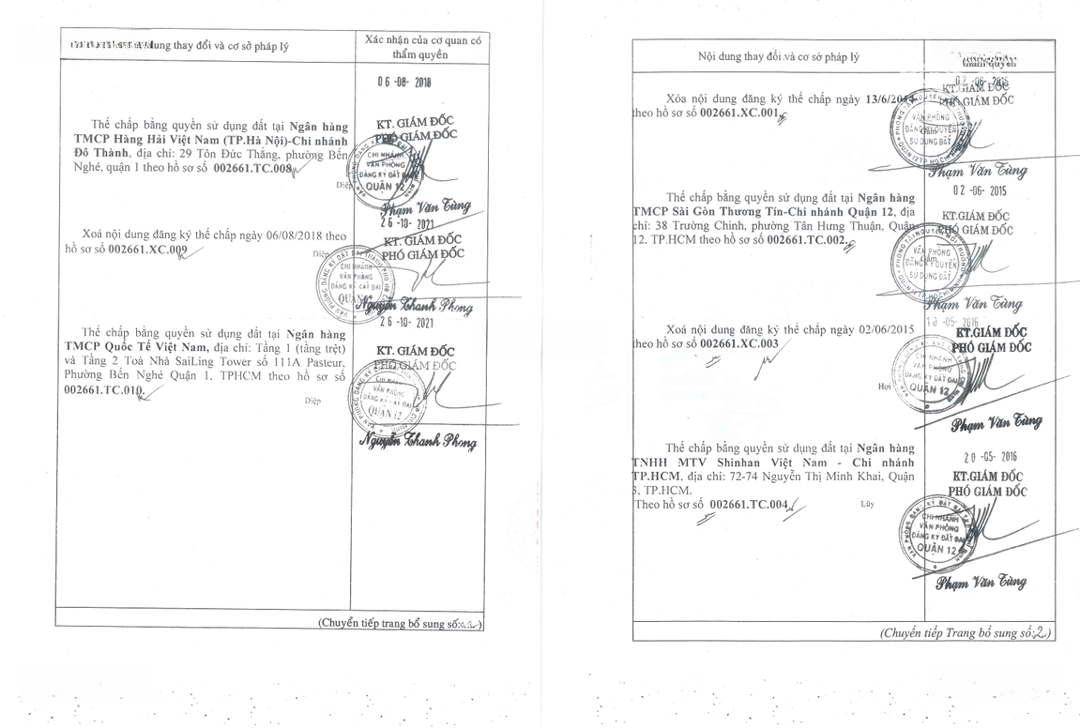 dung thay đổi và cơ sở pháp lý
Xác nhận của cơ quan có
thẩm quyền
06 -08- 2018
Thế chấp bằng quyền sử dụng đất tại Ngân hàng
TMCP Hàng Hải Việt Nam (TP.Hà Nội)-Chi nhánh
Đô Thành, địa chỉ: 29 Tôn Đức Thắng, phường Bến
Nghé, quận 1 theo hồ sơ số 002661.TC.008
Diệp
KT. GIÁM ĐỐC
PHÓ GIÁM ĐỐC
CHI NHÁNH
VĂN PHÒNG
ĐĂNG KÝ ĐẤT ĐAI
QUẬN 12
Phạm Văn Tùng
26 -10- 2021
Xoá nội dung đăng ký thế chấp ngày 06/08/2018 theo
hồ sơ số 002661.XC.009
Diệp
KT. GIÁM ĐỐC
PHÓ GIÁM ĐỐC
CHI NHÁNH
VĂN PHÒNG
ĐĂNG KÝ ĐẤT ĐAI
QUẬN
Nguyễn Thanh Phong
26 -10- 2021
Thế chấp bằng quyền sử dụng đất tại Ngân hàng
TMCP Quốc Tế Việt Nam, địa chỉ: Tầng 1 (tầng trệt)
và Tầng 2 Toà Nhà SaiLing Tower số 111A Pasteur,
Phường Bến Nghé Quận 1, TPHCM theo hồ sơ số
002661.TC.010.
Diệp
KT. GIÁM ĐỐC
PHÓ GIÁM ĐỐC
CHI NHÁNH
VĂN PHÒNG
ĐĂNG KÝ ĐẤT ĐAI
QUẬN 12
Nguyễn Thanh Phong
(Chuyển tiếp trang bổ sung số: )
Nội dung thay đổi và cơ sở pháp lý
thẩm quyền
02 -06- 2015
Xóa nội dung đăng ký thế chấp ngày 13/6/2014
theo hồ sơ số 002661.XC.001
KT.GIÁM ĐỐC
PHÓ GIÁM ĐỐC
VĂN PHÒNG
ĐĂNG KÝ QUYỀN
SỬ DỤNG ĐẤT
Phạm Văn Tùng
02 -06- 2015
Thế chấp bằng quyền sử dụng đất tại Ngân hàng
TMCP Sài Gòn Thương Tín-Chi nhánh Quận 12, địa
chỉ: 38 Trường Chinh, phường Tân Hưng Thuận, Quận
12, TP.HCM theo hồ sơ số 002661.TC.002
KT.GIÁM ĐỐC
PHÓ GIÁM ĐỐC
VĂN PHÒNG
ĐĂNG KÝ QUYỀN
SỬ DỤNG ĐẤT
Phạm Văn Tùng
-05- 2016
Xoá nội dung đăng ký thế chấp ngày 02/06/2015
theo hồ sơ số 002661.XC.003
Hơi
KT.GIÁM ĐỐC
PHÓ GIÁM ĐỐC
CHI NHÁNH
VĂN PHÒNG
ĐĂNG KÝ ĐẤT ĐAI
QUẬN 12
Phạm Văn Tùng
20 -05- 2016
Thế chấp bằng quyền sử dụng đất tại Ngân hàng
TNHH MTV Shinhan Việt Nam - Chi nhánh
TP.HCM, địa chỉ: 72-74 Nguyễn Thị Minh Khai, Quận
3, TP.HCM.
Theo hồ sơ số 002661.TC.004
Lũy
KT.GIÁM ĐỐC
PHÓ GIÁM ĐỐC
CHI NHÁNH
VĂN PHÒNG
ĐĂNG KÝ ĐẤT ĐAI
QUẬN 12
Phạm Văn Tùng
(Chuyển tiếp Trang bổ sung số: 2.)